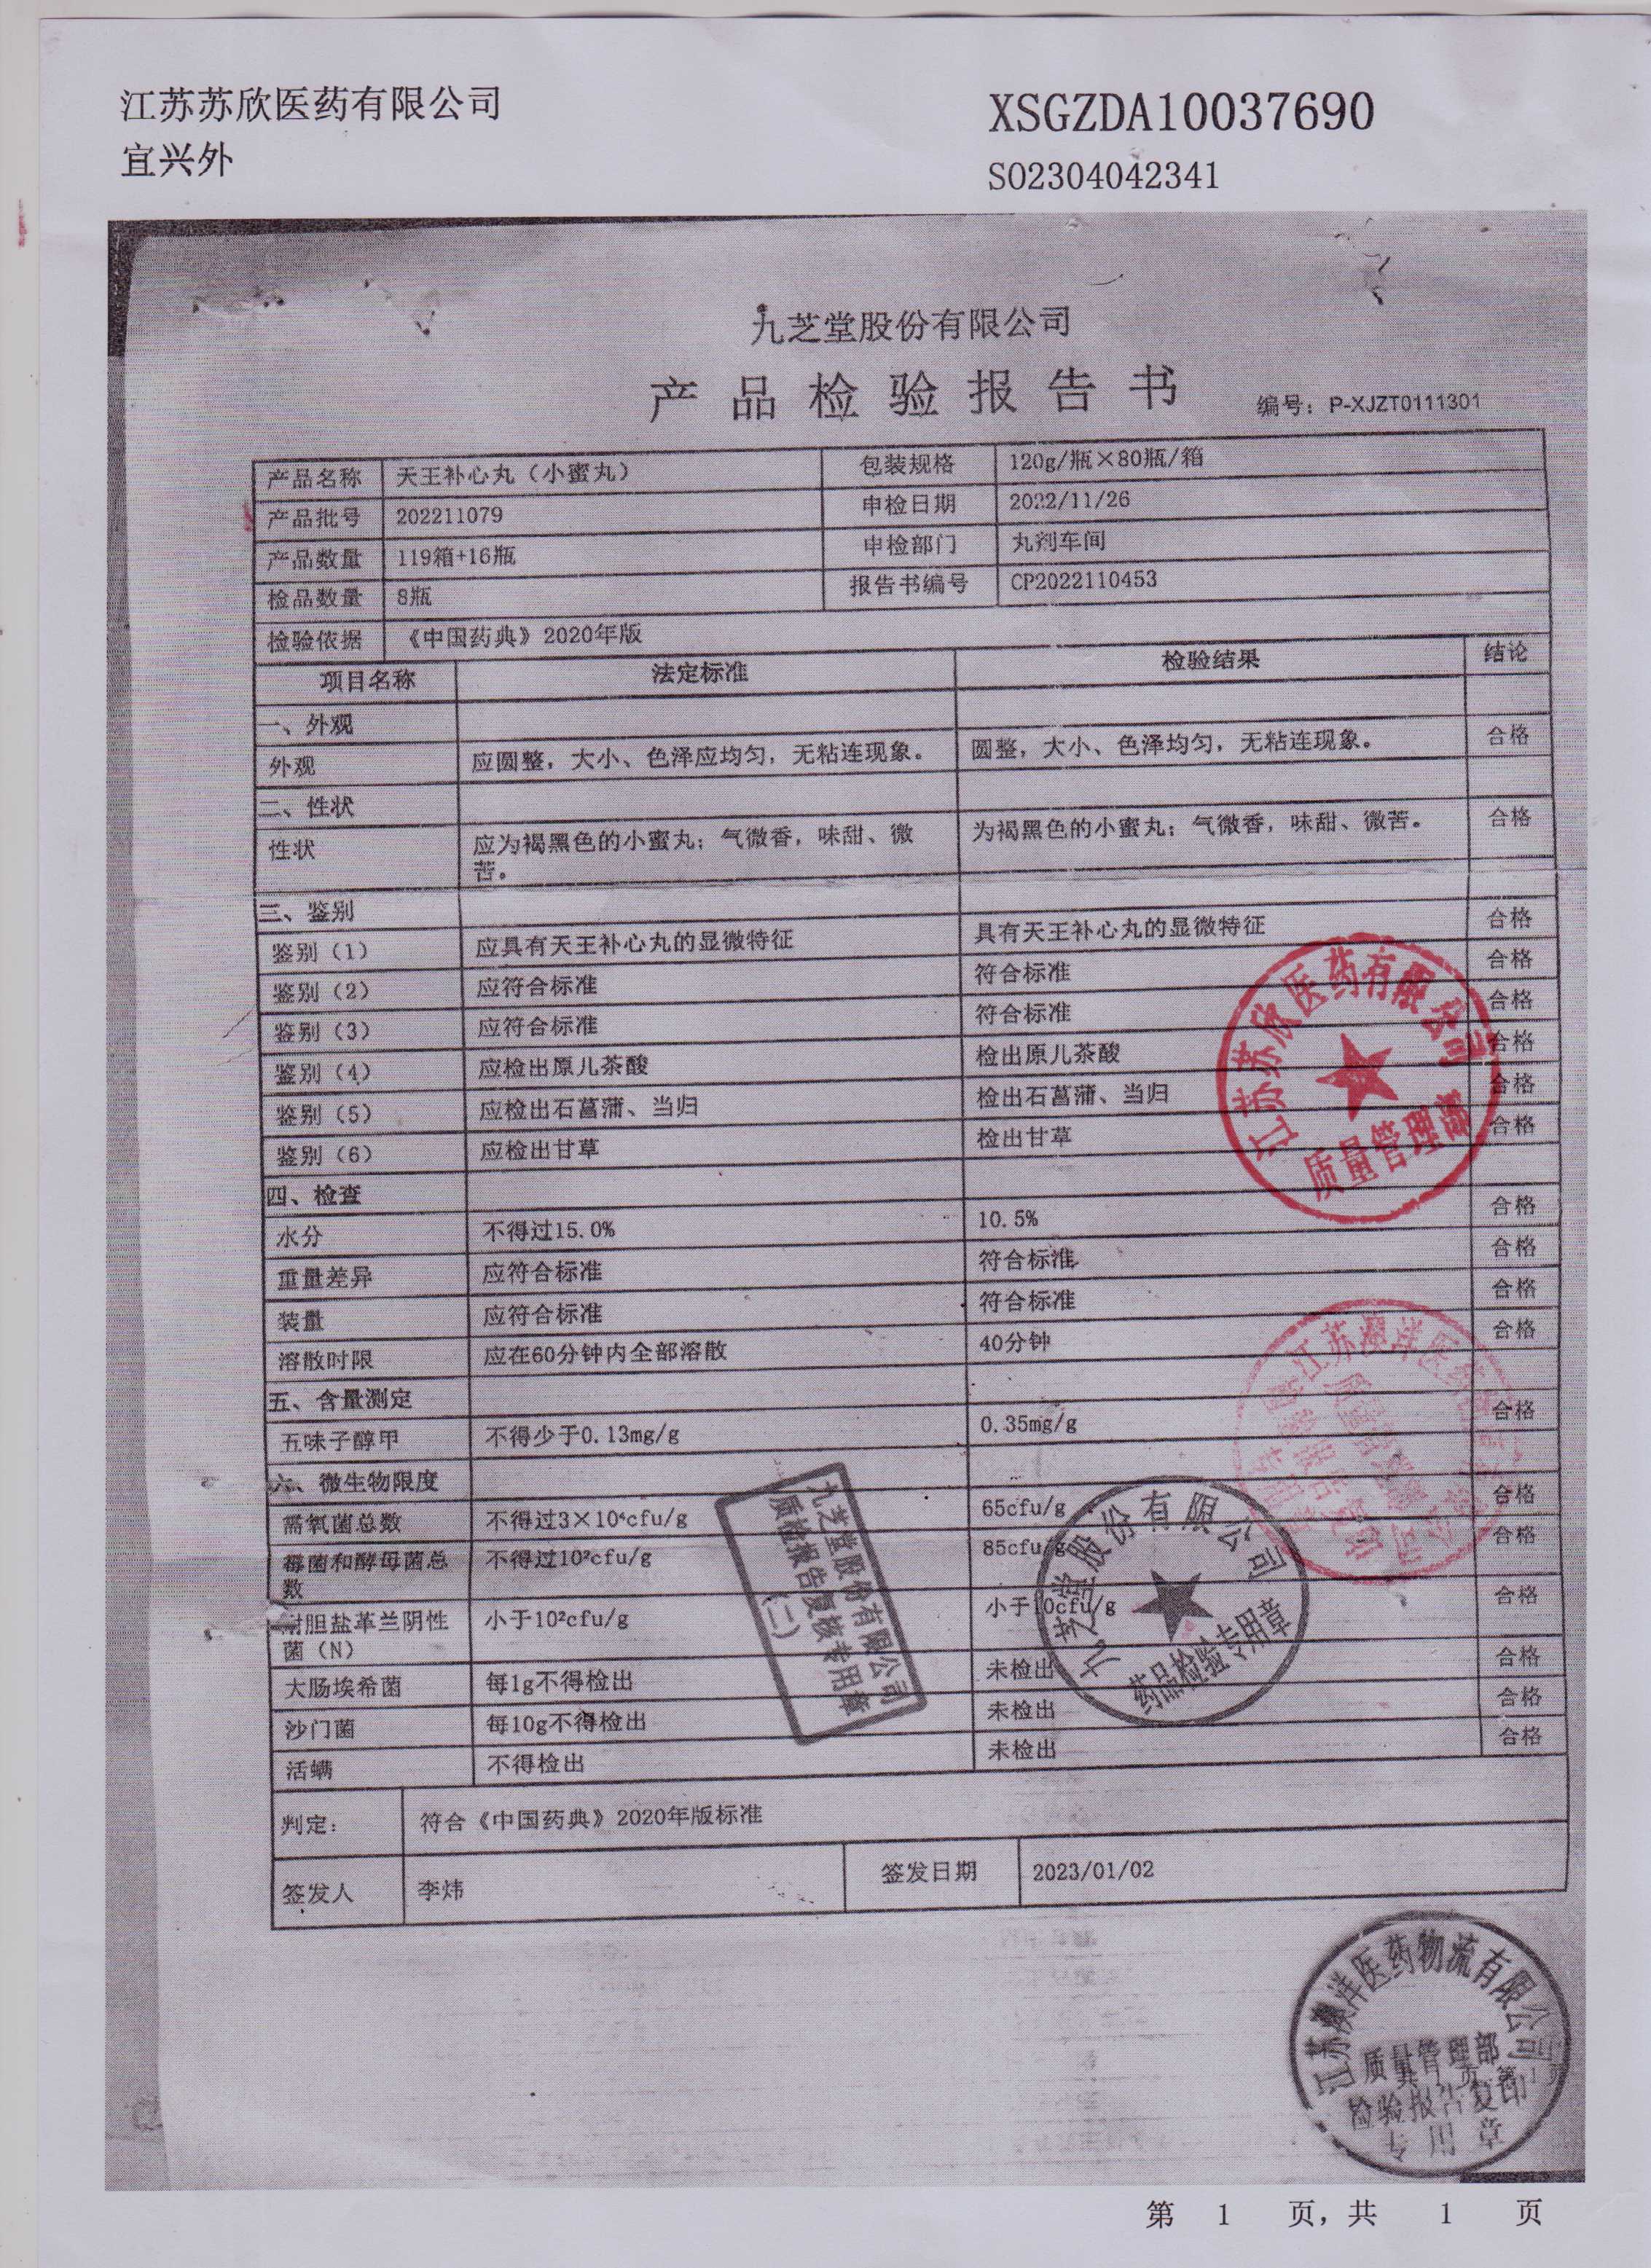 江苏苏欣医药有限公司 XSGZDA10037690
宜兴外 SO2304042341
九芝堂股份有限公司
产品检验报告书 编号：P-XJZT0111301
产品名称 天王补心丸（小蜜丸） 包装规格 120g/瓶×80瓶/箱
产品批号 202211079 申检日期 2022/11/26
产品数量 119箱+16瓶 申检部门 丸剂车间
检品数量 8瓶 报告书编号 CP2022110453
检验依据 《中国药典》2020年版
项目名称 法定标准 检验结果 结论
一、外观
外观 应圆整，大小、色泽应均匀，无粘连现象。 圆整，大小、色泽均匀，无粘连现象。 合格
二、性状
性状 应为褐黑色的小蜜丸；气微香，味甜、微 为褐黑色的小蜜丸；气微香，味甜、微苦。 合格
苦。
三、鉴别
鉴别（1） 应具有天王补心丸的显微特征 具有天王补心丸的显微特征 合格
鉴别（2） 应符合标准 符合标准 合格
鉴别（3） 应符合标准 符合标准 合格
鉴别（4） 应检出原儿茶酸 检出原儿茶酸 合格
鉴别（5） 应检出石菖蒲、当归 检出石菖蒲、当归 合格
鉴别（6） 应检出甘草 检出甘草 合格
四、检查
水分 不得过15.0% 10.5% 合格
重量差异 应符合标准 符合标准 合格
装量 应符合标准 符合标准 合格
溶散时限 应在60分钟内全部溶散 40分钟 合格
五、含量测定
五味子醇甲 不得少于0.13mg/g 0.35mg/g 合格
六、微生物限度
需氧菌总数 不得过3×10⁴cfu/g 65cfu/g 合格
霉菌和酵母菌总 不得过10²cfu/g 85cfu/g 合格
数
耐胆盐革兰阴性 小于10²cfu/g 小于10cfu/g 合格
菌（N）
大肠埃希菌 每1g不得检出 未检出 合格
沙门菌 每10g不得检出 未检出 合格
活螨 不得检出 未检出 合格
判定： 符合《中国药典》2020年版标准
签发人 李炜 签发日期 2023/01/02
江苏苏欣医药有限公司
质量管理章
九芝堂股份有限公司
质检报告复核专用章
（二）
九芝堂股份有限公司
药品检验专用章
江苏澳洋医药物流有限公司
质量管理部
检验报告复印
专用章
第 1 页，共 1 页